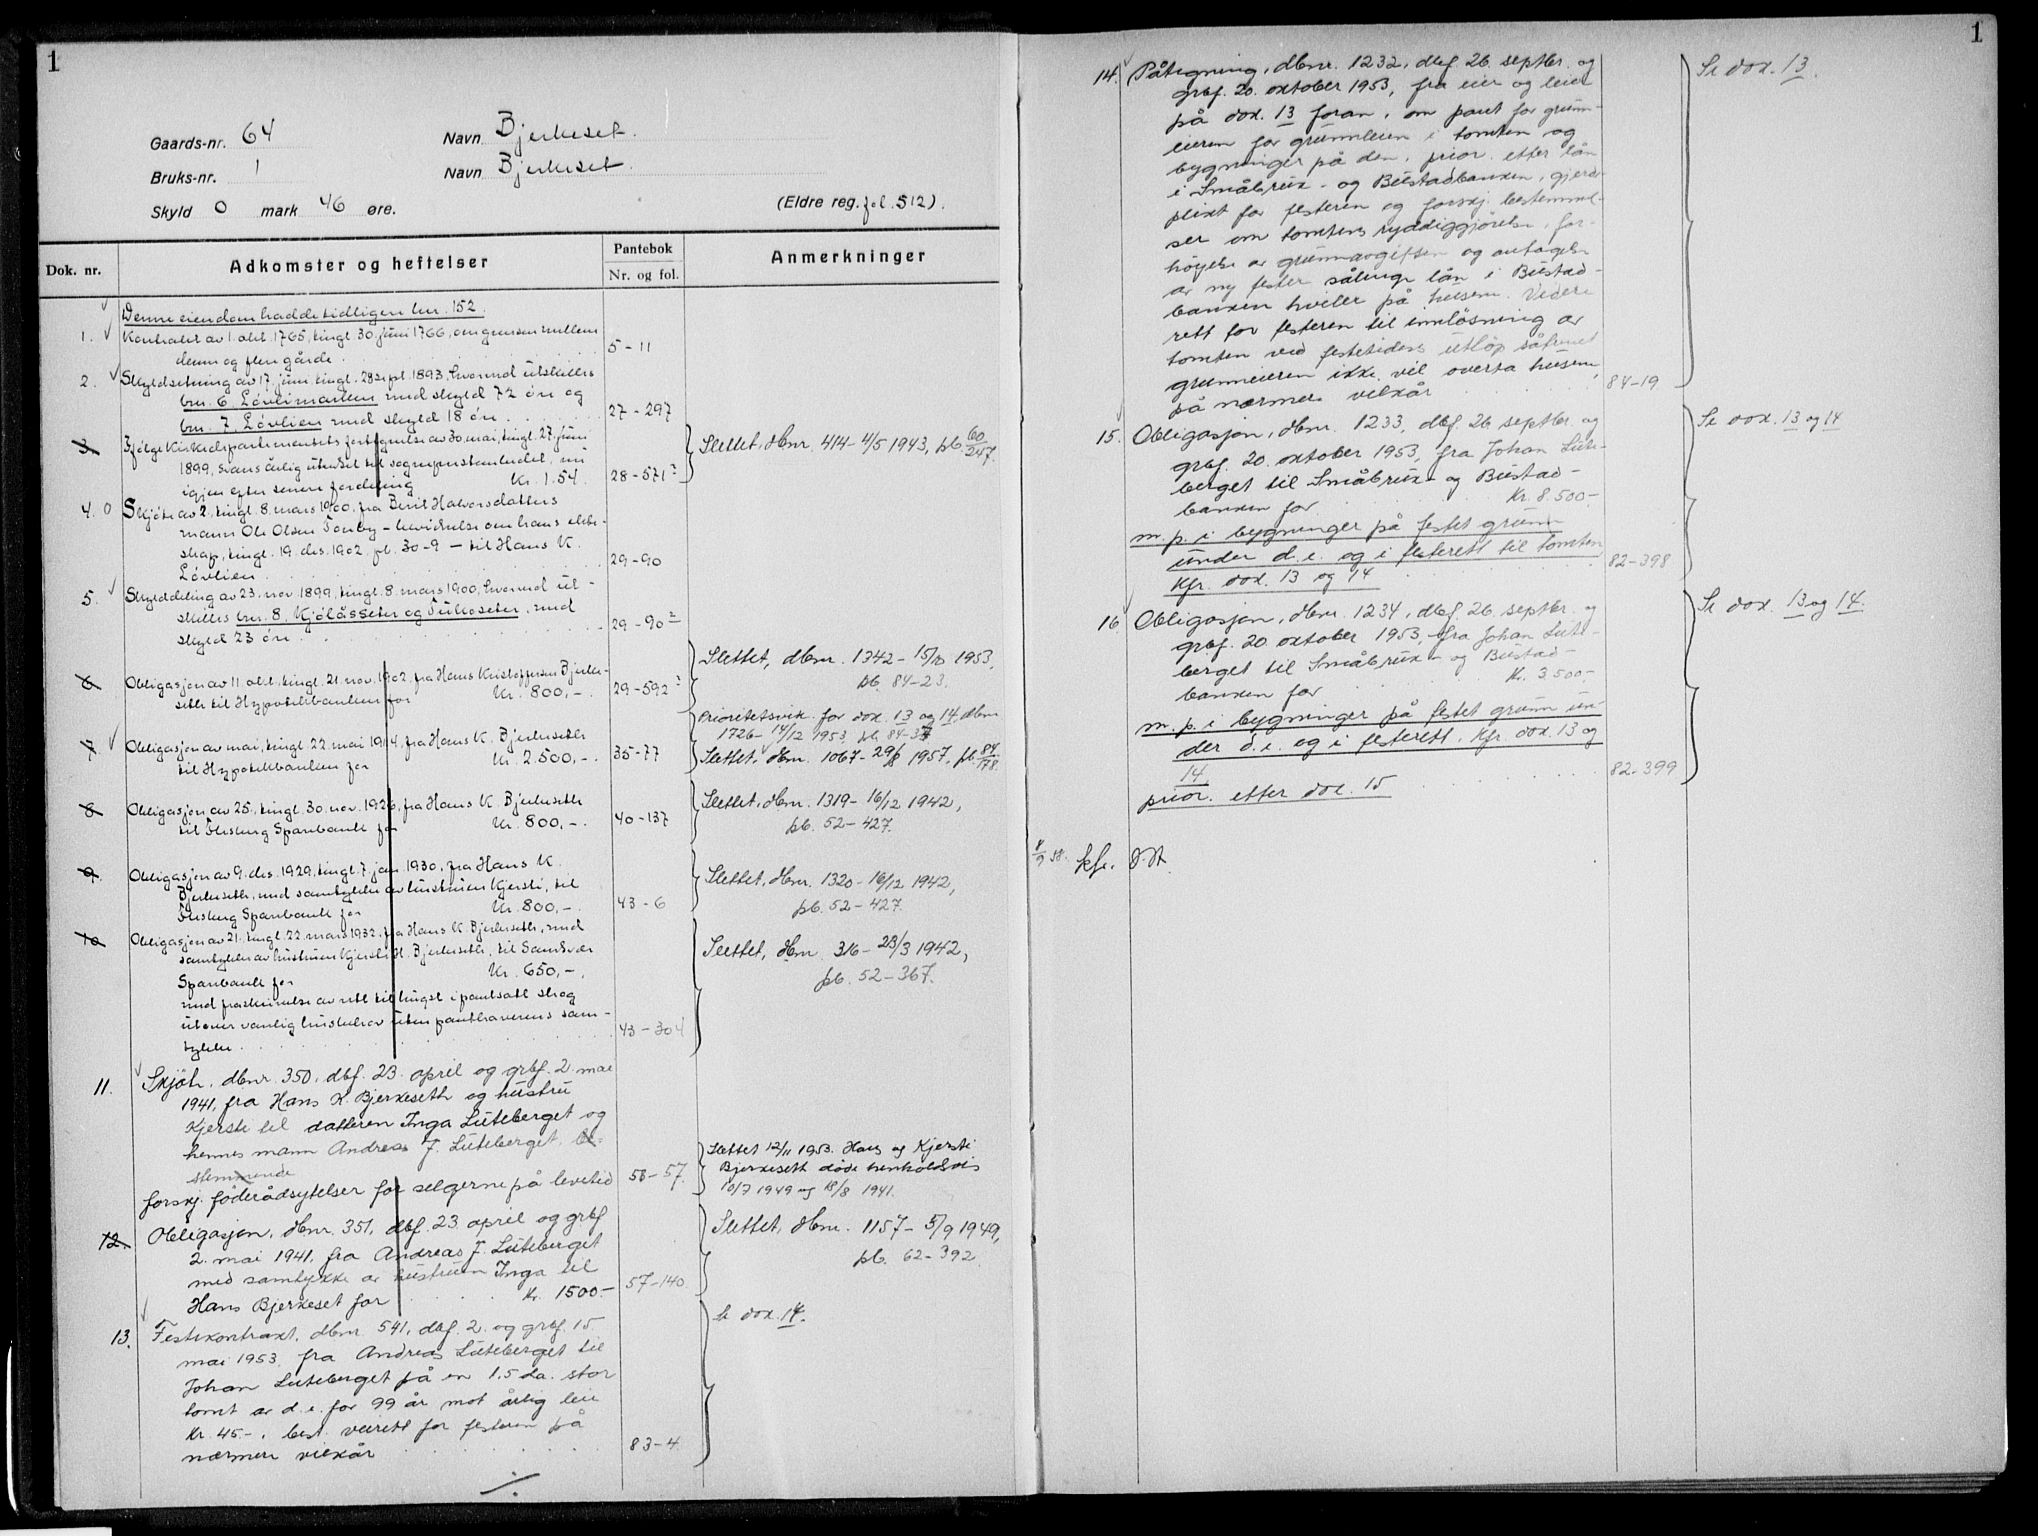 1
Gaards-nr. 64 Navn Bjerkeset.
Bruks-nr. 1 Navn Bjerkeset
Skyld 0 mark 46 øre. (Eldre reg. fol. 512).
Dok. nr. Adkomster og heftelser Pantebok Nr. og fol. Anmerkninger
Denne eiendom hadde tidligere lnr. 152
1. Kontrakt av 1. okt. 1765, tingl. 30. juni 1766, om grensen mellem
denne og flere gårde. 5-11
2. Skyldsetning av 17. juni, tingl. 28 sept. 1893, hvorved utskilles
bnr. 6 Lövlimarken med skyld 72 öre og
bnr. 7 Lövlien med skyld 18 öre 27-297
3. Ifölge Kirkedepartementets fastsettelse av 30. mai, tingl. 27. juni
1899, svares årlig utredsel til sogneprestembedet, nu
igjen efter senere fordeling Kr. 1.54. 28-571²
Slettet, dbnr. 414-4/5 1943, pb 60/247.
4. 0 Skjöte av 2, tingl. 8. mars 1900, fra Berit Halvorsdatters
mann Ole Olsen Tonby - bevidnelse om hans ekte-
skap, tingl. 19. des. 1902, pb. 30-9 - til Hans K.
Lövlien 29-90
5. Skylddeling av 23. nov. 1899, tingl. 8. mars 1900, hvorved ut-
skilles bnr. 8 Kjölåsseter og Turkoseter, med
skyld 23 öre 29-90²
6. Obligasjon av 11. okt., tingl. 21. nov. 1902, fra Hans Kristoffersen Bjerke-
seth til Hypotekbanken for Kr. 800,-. 29-592²
Slettet, dbnr. 1342-15/10 1953,
pb. 84-23.
7. Obligasjon av mai, tingl. 22. mai 1914, fra Hans K. Bjerkeseth
til Hypotekbanken for Kr. 2.500,-. 35-77
Prioritetsvik. for dok. 13 og 14, dbnr
1726-14/12 1953, pb. 84-37
Slettet, dbnr. 1067-29/8 1957, pb. 84/178.
8. Obligasjon av 25., tingl. 30. nov. 1926, fra Hans K. Bjerkeseth
til Elverum Sparebank for Kr. 800,-. 40-137
Slettet, dbnr. 1319-16/12 1942,
pb. 52-427.
9. Obligasjon av 9. des. 1929, tingl. 7. jan. 1930, fra Hans K.
Bjerkeseth, med samtykke av hustruen Kjersti, til
Sparebank for Kr. 800,-. 43-6
Slettet, dbnr. 1320-16/12 1942,
pb. 52-427.
10. Obligasjon av 21, tingl. 22. mars 1932, fra Hans K. Bjerkeseth, med
samtykke av hustruen Kjersti H. Bjerkeseth, til Samdsvær
Sparebank for Kr. 650,-,
med fraskrivelse av rett til hugst i pantsatt skog
utover vanlig husbehov uten panthaverens sam-
tykke 43-304
Slettet, dbnr 316-23/3 1942,
pb. 52-367.
11. Skjöte, dbnr. 350, dbf. 23. april og grbf. 2. mai
1941, fra Hans K. Bjerkeseth og hustru
Kjersti til datteren Inga Luteberget og
hennes mann Andreas J. Luteberget, be-
stemmende
forskj. föderådsytelser for selgerne på levetid 58-57.
Slettet 12/11 1953. Hans og Kjersti
Bjerkeseth döde henholdsvis
10/7 1949 og 18/8 1941.
12. Obligasjon, dbnr. 351, dbf. 23 april og grbf
2. mai 1941, fra Andreas J. Luteberget
med samtykke av hustruen Inga til
Hans Bjerkeset for Kr. 1500- 57-140
Slettet, dbnr. 1157-5/9 1949,
pb. 62-392.
13. Festekontrakt, dbnr. 541, dbf. 2. og grbf. 15
mai 1953, fra Andreas Luteberget til
Johan Luteberget på en 1.5 da. stor
tomt av d.e. for 99 år mot årlig leie
Kr. 45.-, best. veirett for festeren på
nærmere vilkår 83-4.
Se dok. 14.
1
14. Påtegning, dbnr. 1232, dbf. 26. septbr. og
grbf. 20. oktober 1953, fra eier og leier
på dok. 13 foran, om pant for grunn-
eieren for grunnleien i tomten og
bygninger på den, prior. etter lån
i Småbruk- og Bustadbanken, gjerde-
plikt for festeren og forskj. bestemmel-
ser om tomtens ryddiggjörelse, for-
höyelse av grunnavgiften og antagelse
av ny fester sålenge lån i Bustad-
banken hviler på husene. Videre
rett for festeren til innlösning av
tomten ved festetidens utlöp såfremt
grunneieren ikke vil overta husene
på nærmere vilkår 84-19
Se dok. 13.
15. Obligasjon, dbnr. 1233, dbf. 26 septbr. og
grbf. 20. oktober 1953, fra Johan Lute-
berget til Småbruk- og Bustad-
banken for Kr. 8.500-
m. p. i bygninger på festet grunn
under d.e. og i festerett til tomten
Kfr. dok. 13 og 14 82-398
Se dok. 13 og 14
16. Obligasjon, dbnr. 1234, dbf. 26. septbr. og
grbf. 20. oktober 1953, fra Johan Lute-
berget til Småbruk- og Bustad-
banken for Kr. 3.500-
m. p. i bygninger på festet grunn un-
der d.e. og i festerett. Kfr. dok. 13 og
14.
prior. etter dok. 15 82-399
Se dok. 13 og 14.
8/9 58. kfr.